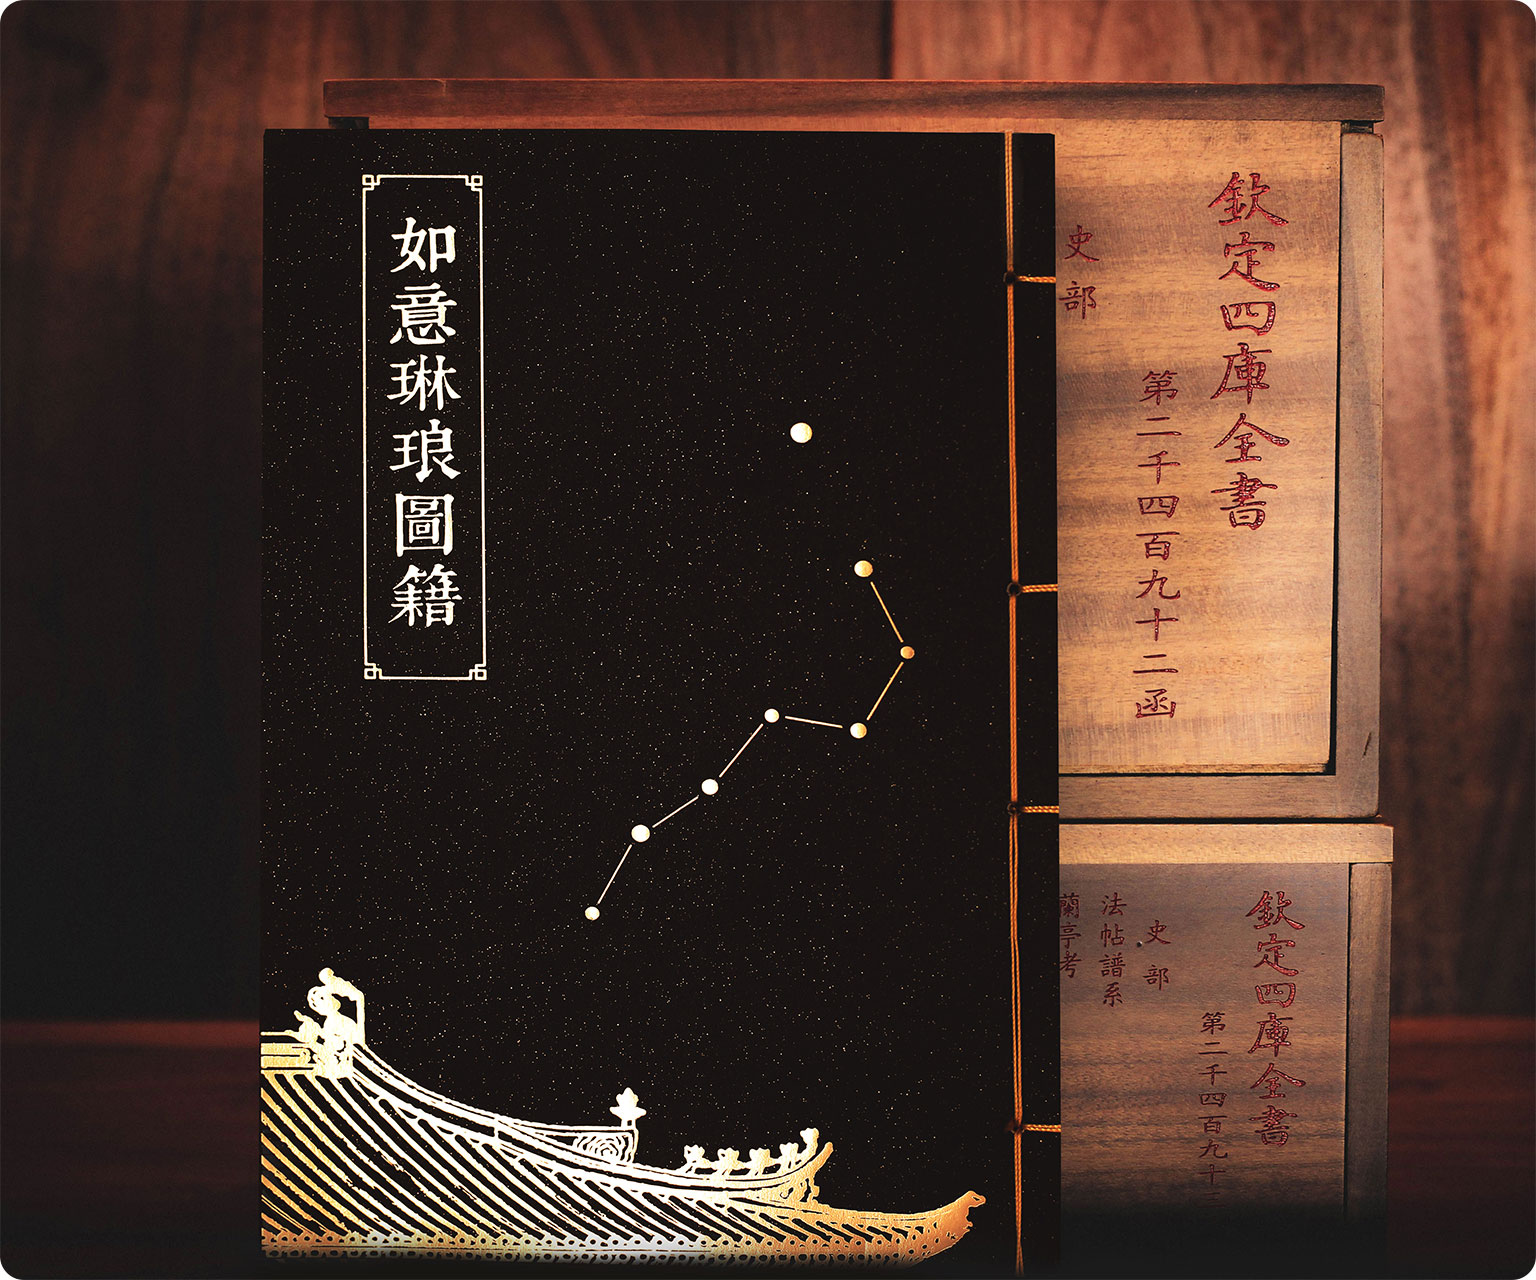 如意琳琅圖籍
欽定四庫全書
第二千四百九十二函
史部
欽定四庫全書
第二千四百九十
史部
法帖譜系
蘭亭考